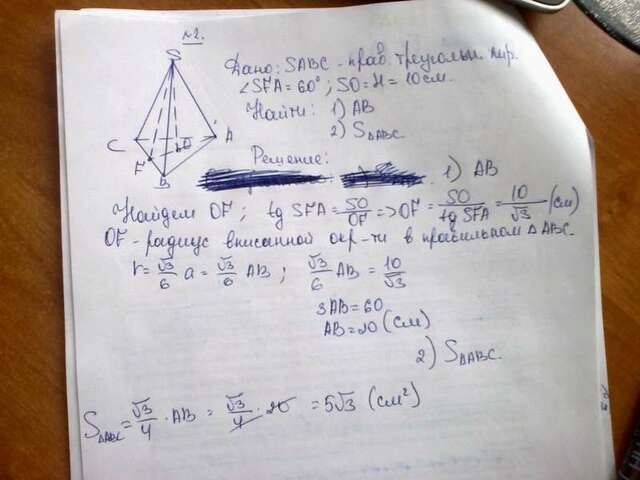 №2.
S
C
A
O
F
B
Дано: SABC - прав. треугольн. пир.
∠SFA = 60°; SO = H = 10 см.
Найти: 1) AB
2) S△ABC.
Решение:
1) AB
Найдем OF; tg SFA = SO/OF => OF = SO/tg SFA = 10/√3 (см)
OF - радиус вписанной окр-ти в правильном △ABC.
r = √3/6 a = √3/6 AB; √3/6 AB = 10/√3
3AB = 60
AB = 20 (см)
2) S△ABC.
S△ABC = √3/4 · AB = √3/4 · 20 = 5√3 (см²)